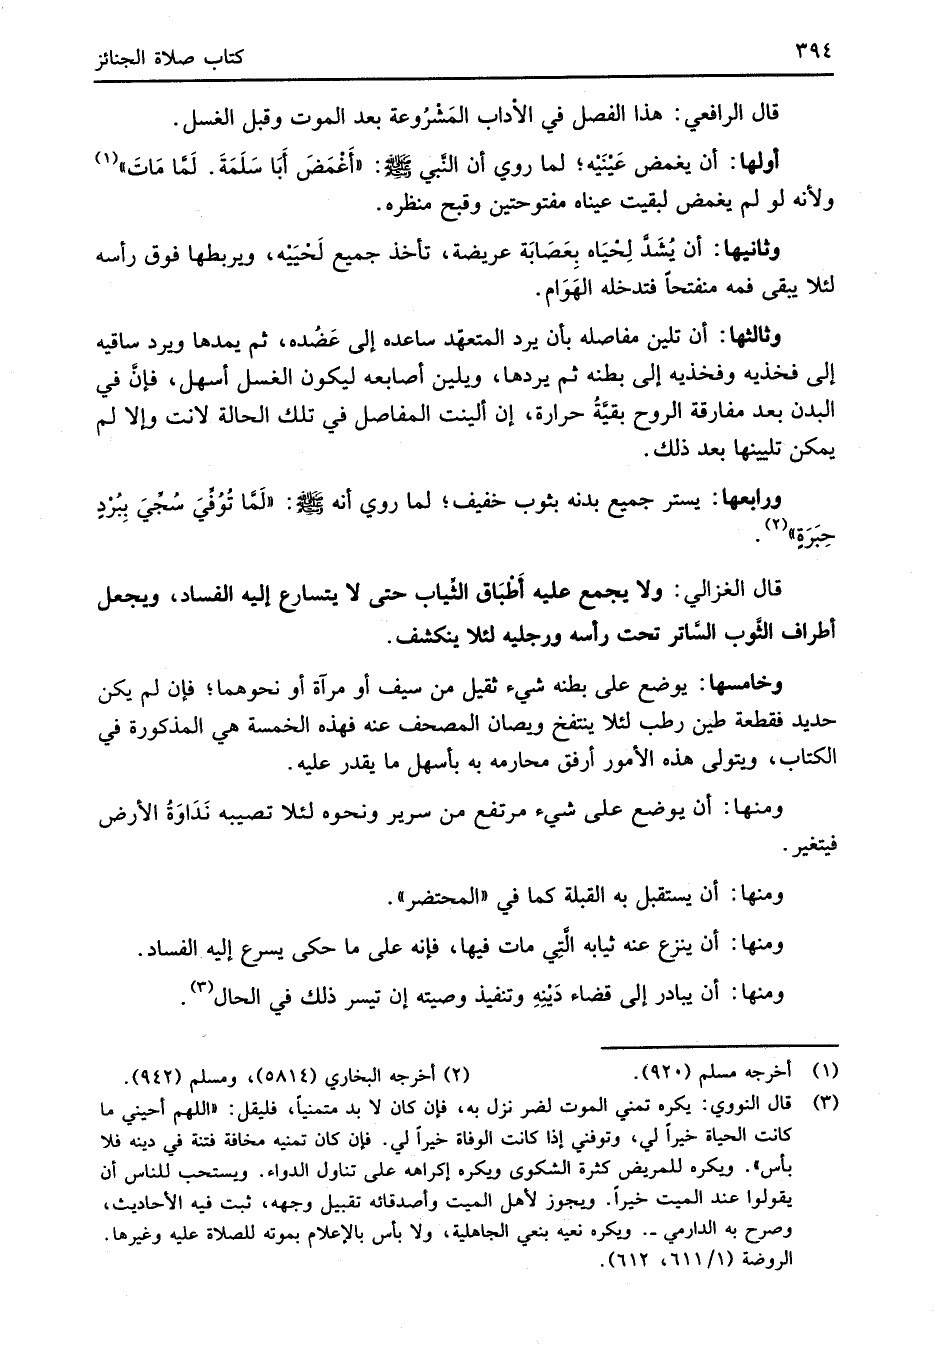 ٣٩٤
كتاب صلاة الجنائز
قال الرافعي: هذا الفصل في الأداب المَشْرُوعة بعد الموت وقبل الغسل.
أولها: أن يغمض عَيْنَيْه؛ لما روي أن النَّبي ﷺ: «أَغْمَضَ أَبَا سَلَمَةَ. لَمَّا مَاتَ»(١)
ولأنه لو لم يغمض لبقيت عيناه مفتوحتين وقبح منظره.
وثانيها: أن يُشَدَّ لِحْيَاه بِعَصَابَة عريضة، تأخذ جميع لَحْيَيْه، ويربطها فوق رأسه
لئلا يبقى فمه منفتحاً فتدخله الهَوَام.
وثالثها: أن تلين مفاصله بأن يرد المتعهّد ساعده إلى عَضُده، ثم يمدها ويرد ساقيه
إلى فخذيه وفخذيه إلى بطنه ثم يردها، ويلين أصابعه ليكون الغسل أسهل، فإنَّ في
البدن بعد مفارقة الروح بقيَّةُ حرارة، إن ألينت المفاصل في تلك الحالة لانت وإلا لم
يمكن تليينها بعد ذلك.
ورابعها: يستر جميع بدنه بثوب خفيف؛ لما روي أنه ﷺ: «لَمَّا تُوُفِّيَ سُجِّيَ بِبُرْدٍ
حِبَرَةٍ»(٢).
قال الغزالي: ولا يجمع عليه أَطْبَاق الثِّياب حتى لا يتسارع إليه الفساد، ويجعل
أطراف الثَّوب السَّاتر تحت رأسه ورجليه لئلا ينكشف.
وخامسها: يوضع على بطنه شيء ثقيل من سيف أو مرآة أو نحوهما؛ فإن لم يكن
حديد فقطعة طين رطب لئلا ينتفخ ويصان المصحف عنه فهذه الخمسة هي المذكورة في
الكتاب، ويتولى هذه الأمور أرفق محارمه به بأسهل ما يقدر عليه.
ومنها: أن يوضع على شيء مرتفع من سرير ونحوه لئلا تصيبه نَدَاوَةُ الأرض
فيتغير.
ومنها: أن يستقبل به القبلة كما في «المحتضر».
ومنها: أن ينزع عنه ثيابه الَّتِي مات فيها، فإنه على ما حكى يسرع إليه الفساد.
ومنها: أن يبادر إلى قضاء دَيْنِهِ وتنفيذ وصيته إن تيسر ذلك في الحال(٣).
(١) أخرجه مسلم (٩٢٠). (٢) أخرجه البخاري (٥٨١٤)، ومسلم (٩٤٢).
(٣) قال النووي: يكره تمني الموت لضر نزل به، فإن كان لا بد متمنياً، فليقل: «اللهم أحيني ما
كانت الحياة خيراً لي، وتوفني إذا كانت الوفاة خيراً لي. فإن كان تمنيه مخافة فتنة في دينه فلا
بأس». ويكره للمريض كثرة الشكوى ويكره إكراهه على تناول الدواء. ويستحب للناس أن
يقولوا عند الميت خيراً. ويجوز لأهل الميت وأصدقائه تقبيل وجهه، ثبت فيه الأحاديث،
وصرح به الدارمي -. ويكره نعيه بنعي الجاهلية، ولا بأس بالإعلام بموته للصلاة عليه وغيرها.
الروضة (١/ ٦١١، ٦١٢).